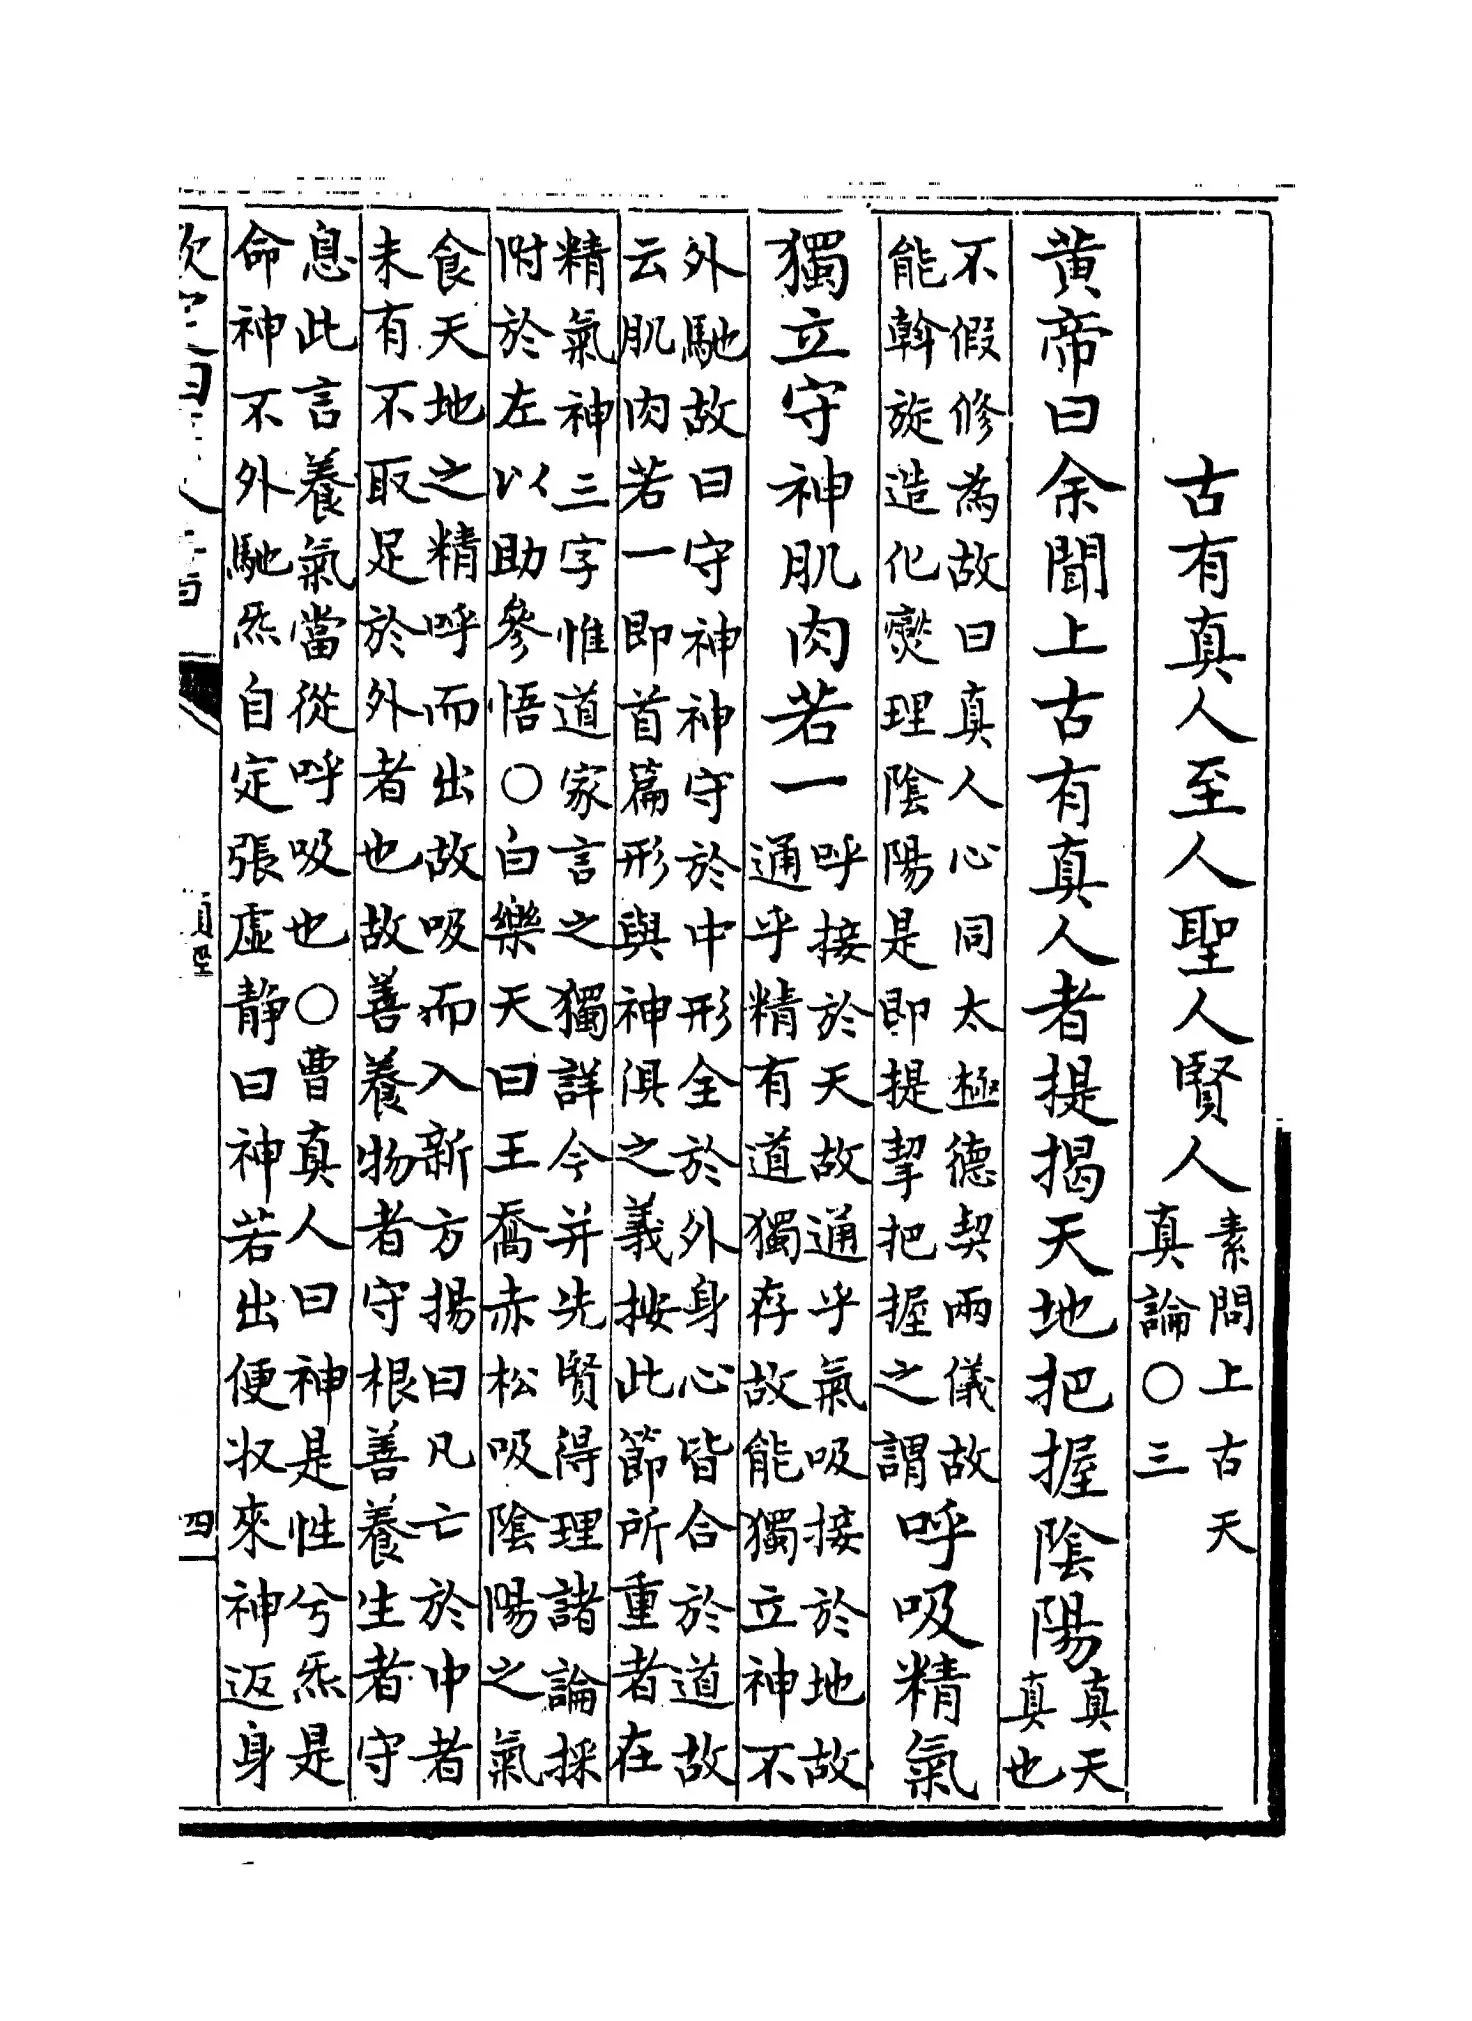 古有真人至人聖人賢人
素問上古天
真論○三
黄帝曰余聞上古有真人者提揭天地把握隂陽
真天
真也
不假修為故曰真人心同太極德契兩儀故
能斡旋造化爕理隂陽是即提挈把握之謂
呼吸精氣
獨立守神肌肉若一
呼接於天故通乎氣吸接於地故
通乎精有道獨存故能獨立神不
外馳故曰守神神守於中形全於外身心皆合於道故
云肌肉若一即首篇形與神俱之義按此節所重者在
精氣神三字惟道家言之獨詳今并先賢得理諸論採
附於左以助參悟○白樂天曰王喬赤松吸隂陽之氣
食天地之精呼而出故吸而入新方揚曰凡亡於中者
未有不取足於外者也故善養物者守根善養生者守
息此言養氣當從呼吸也○曹真人曰神是性兮炁是
命神不外馳炁自定張虛静曰神若出便收來神返身
四